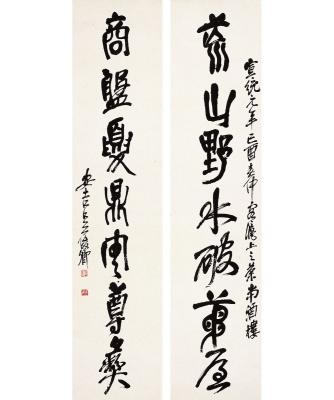 宣統元年己酉客滬上之菜市酒樓
荒山野水破茅屋
商盤夏鼎周尊彝
安吉俊卿